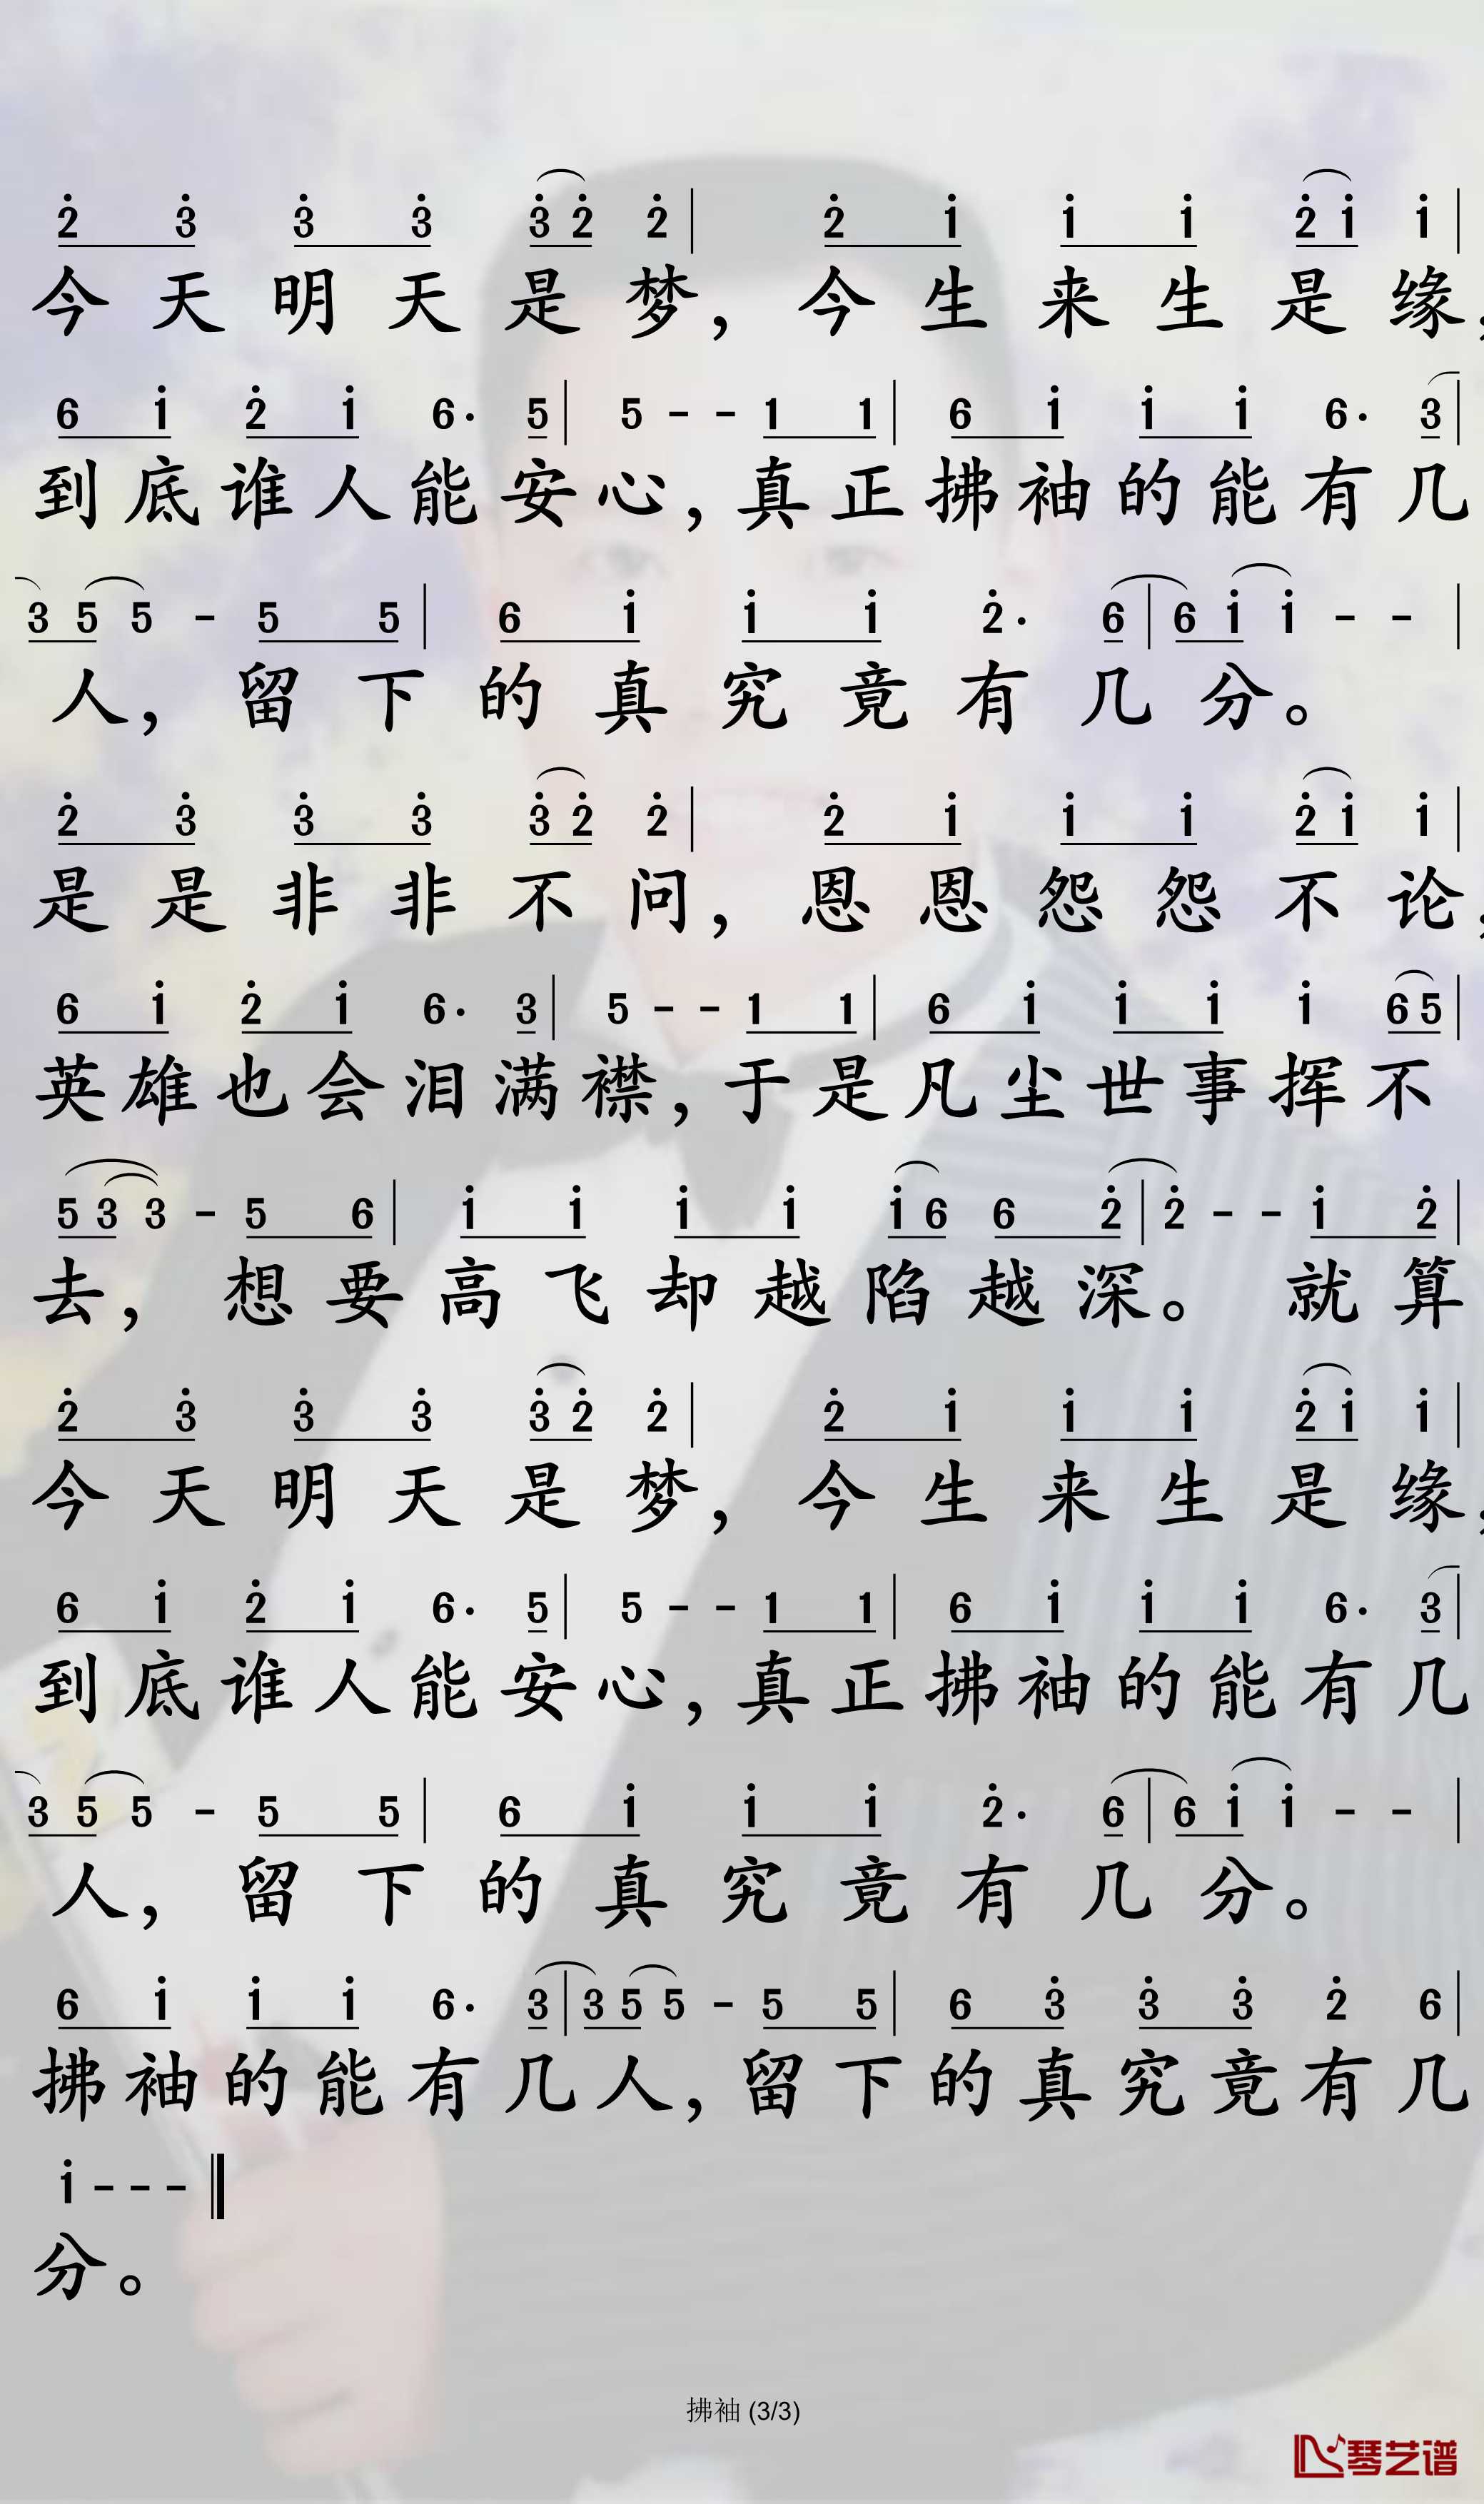 2 3 3 3 3 2 2 | 2 1 1 1 2 1 1 |
今天明天是梦，今生来生是缘，
6 1 2 1 6· 5 | 5 - - 1 1 | 6 1 1 1 6· 3 |
到底谁人能安心，真正拂袖的能有几
3 5 5 - 5 5 | 6 1 1 1 2· 6 | 6 1 1 - - |
人，留下的真究竟有几分。
2 3 3 3 3 2 2 | 2 1 1 1 2 1 1 |
是是非非不问，恩恩怨怨不论，
6 1 2 1 6· 3 | 5 - - 1 1 | 6 1 1 1 1 6 5 |
英雄也会泪满襟，于是凡尘世事挥不
5 3 3 - 5 6 | 1 1 1 1 1 6 6 2 | 2 - - 1 2 |
去，想要高飞却越陷越深。就算
2 3 3 3 3 2 2 | 2 1 1 1 2 1 1 |
今天明天是梦，今生来生是缘，
6 1 2 1 6· 5 | 5 - - 1 1 | 6 1 1 1 6· 3 |
到底谁人能安心，真正拂袖的能有几
3 5 5 - 5 5 | 6 1 1 1 2· 6 | 6 1 1 - - |
人，留下的真究竟有几分。
6 1 1 1 6· 3 | 3 5 5 - 5 5 | 6 3 3 3 2 6 |
拂袖的能有几人，留下的真究竟有几
1 - - - ‖
分。
拂袖 (3/3)
琴艺谱